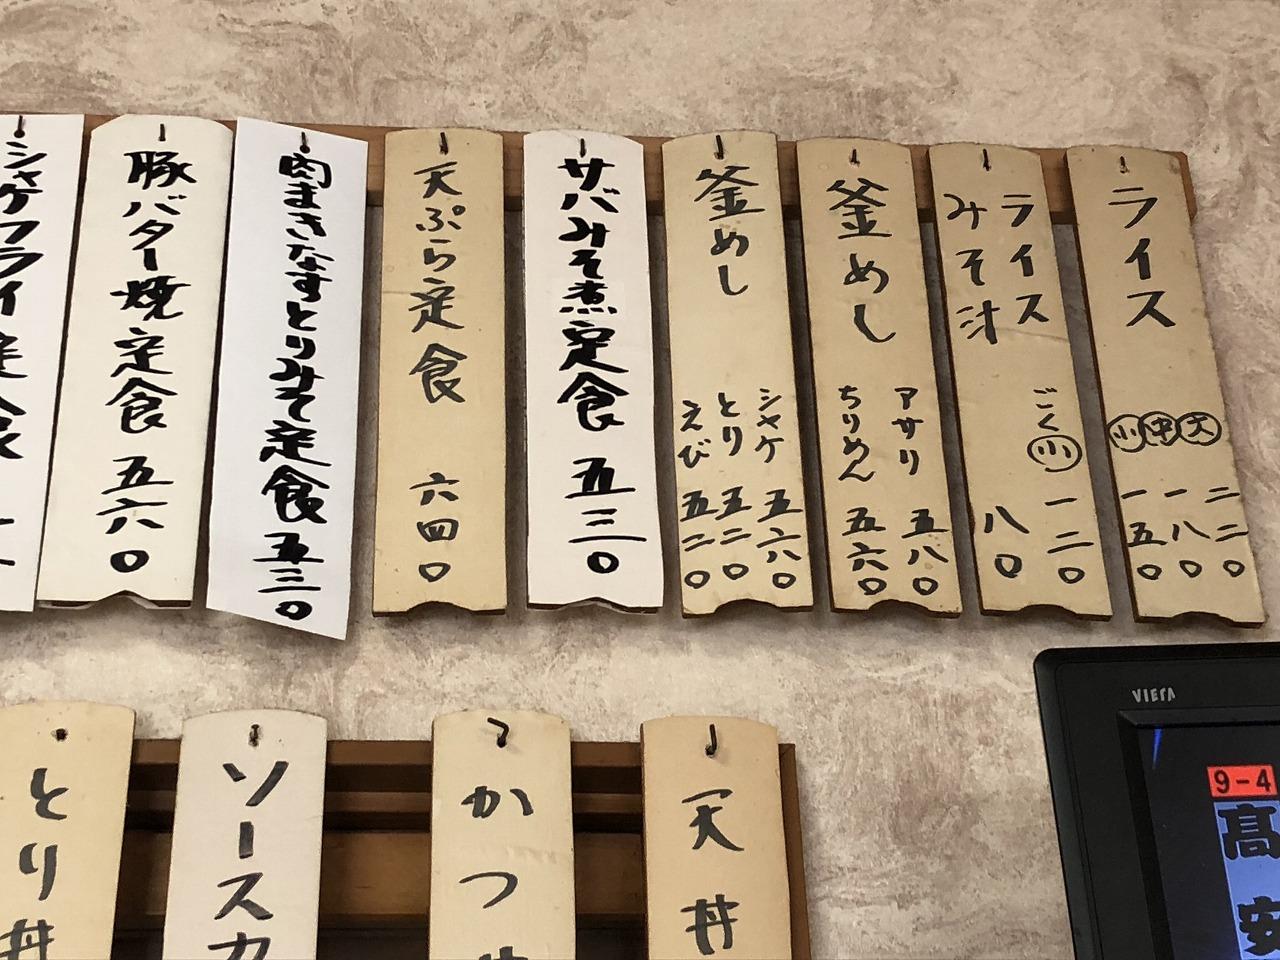 ライス
小 中 大
一五〇 一八〇 二二〇
ライス
ごく小 一二〇
みそ汁 八〇
釜めし
アサリ 五八〇
ちりめん 五六〇
釜めし
シャケ 五六〇
とり 五二〇
えび 五二〇
サバみそ煮定食 五三〇
天ぷら定食 六四〇
肉まきなすとりみそ定食 五三〇
豚バター焼定食 五六〇
シャケフライ定食
天丼
かつ
ソースカ
とり丼
VIERA
9-4
髙安